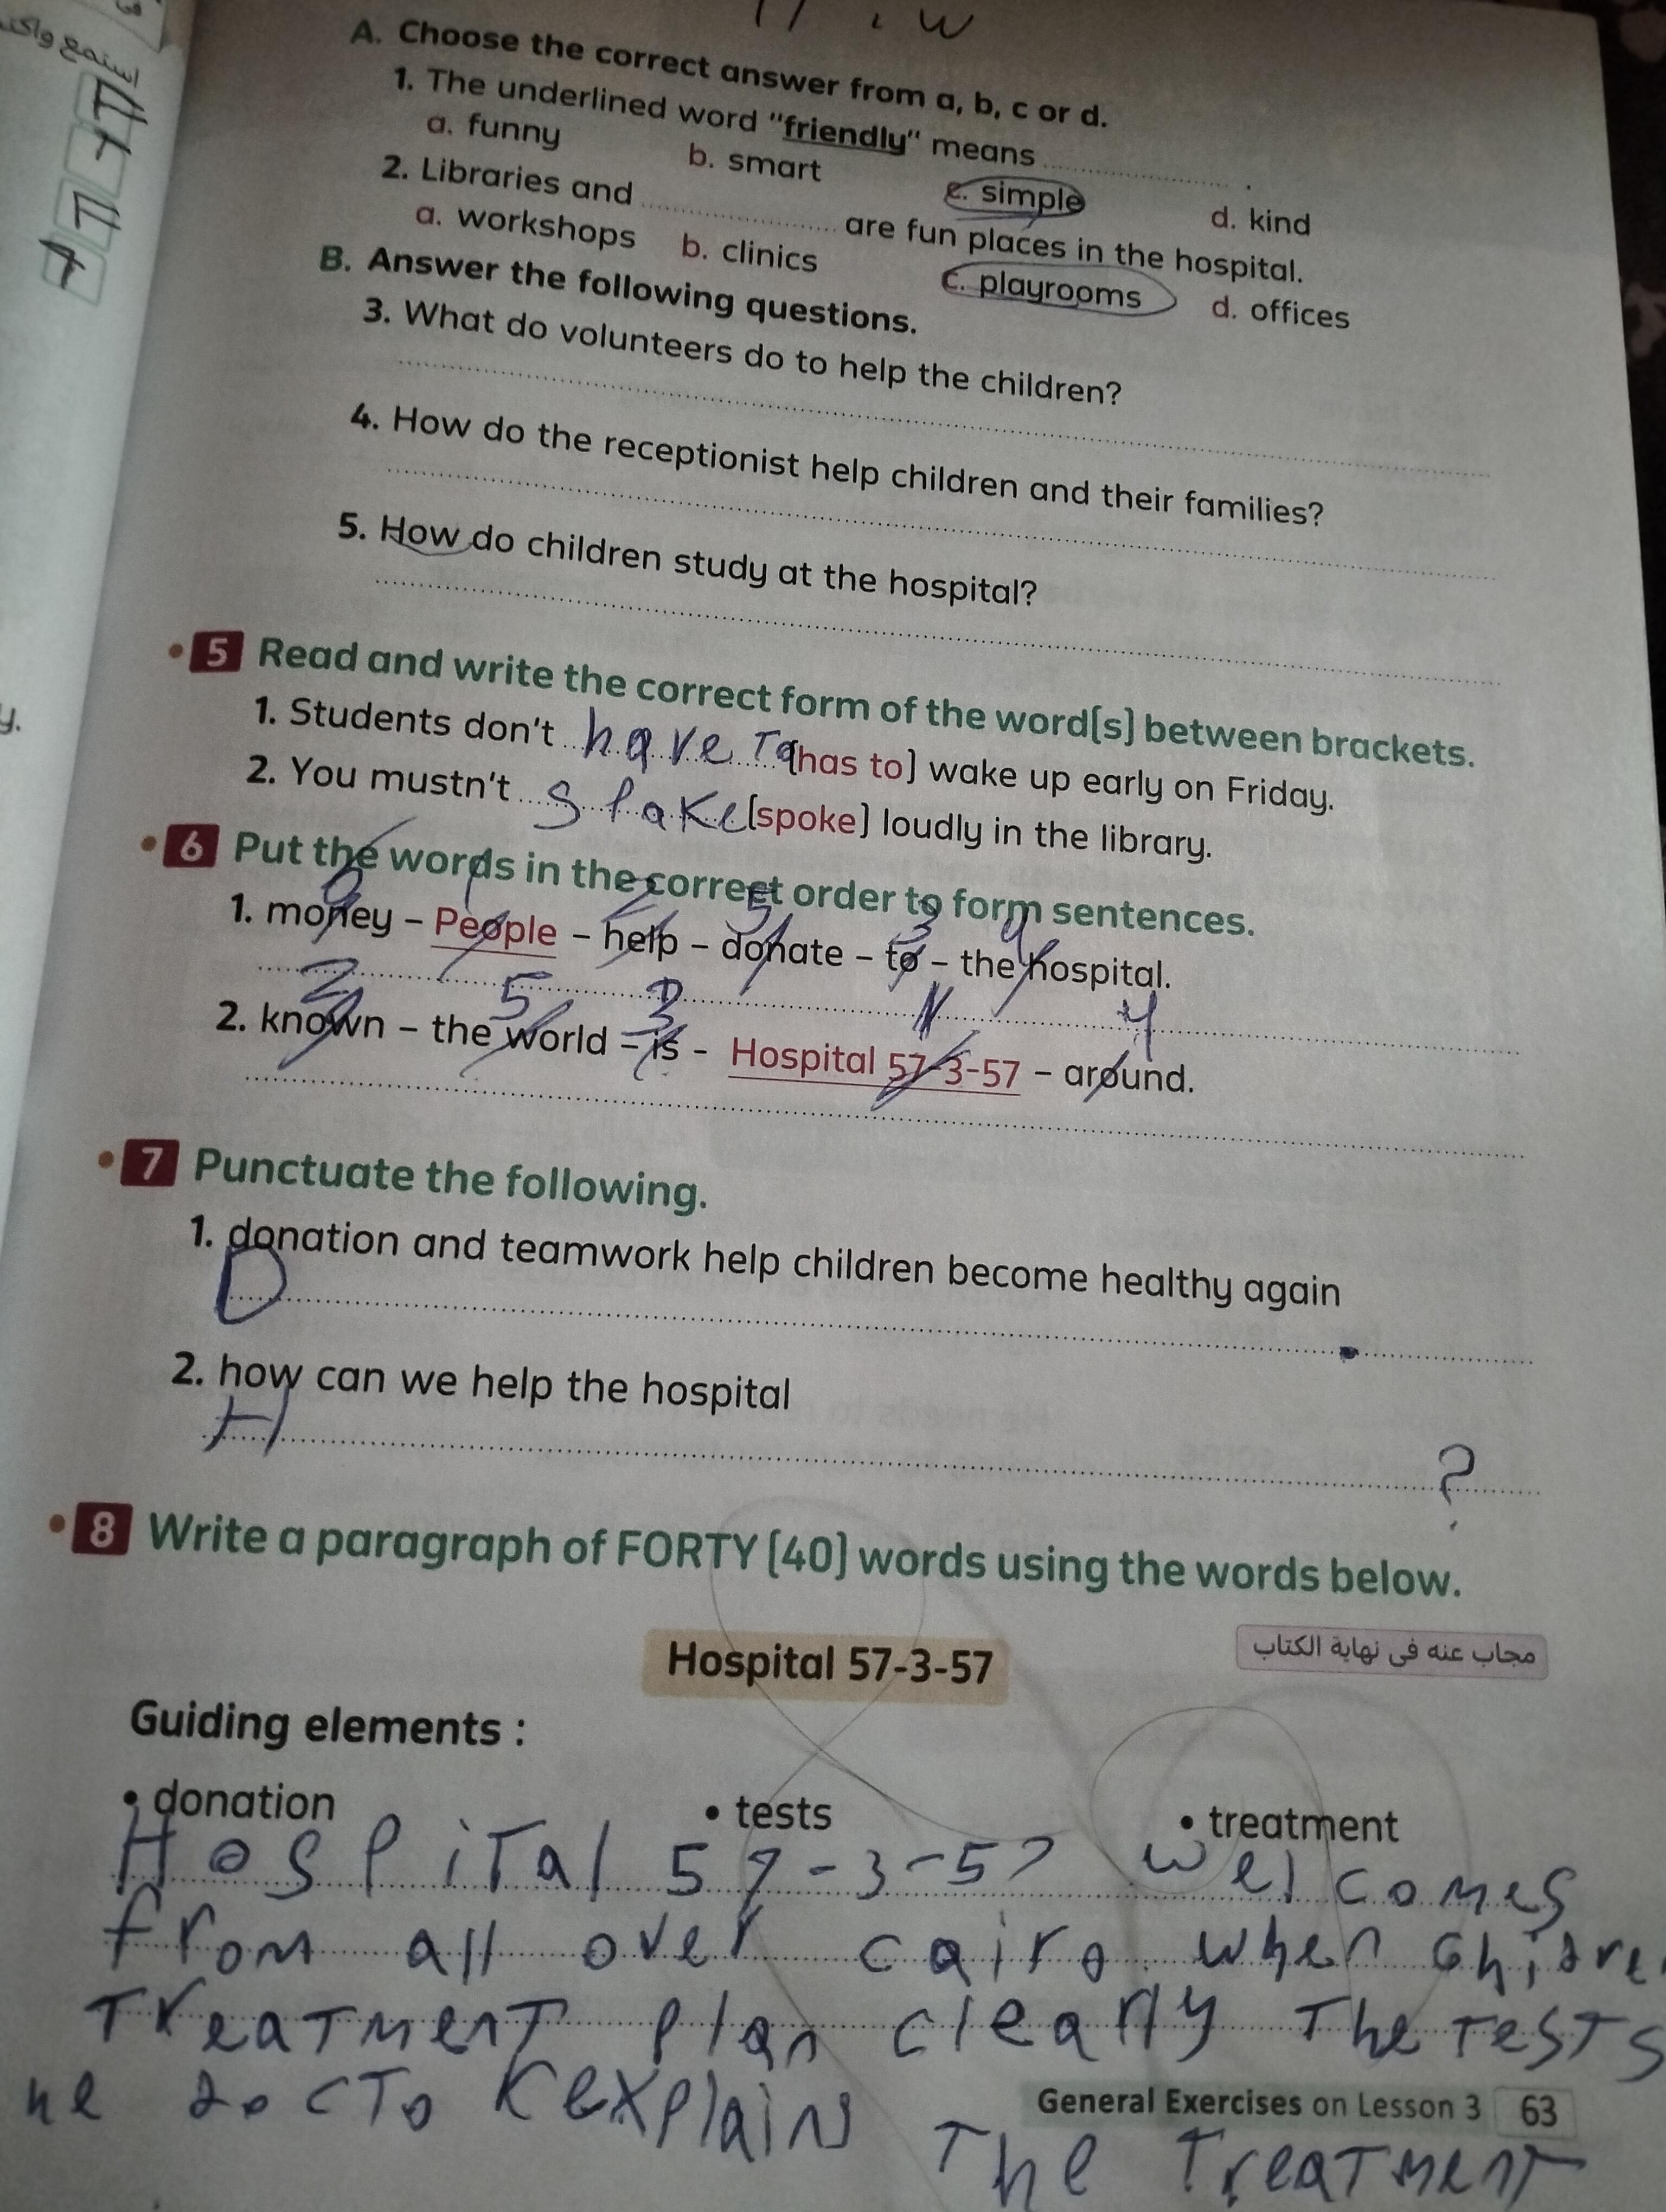 استمع واكتب
A. Choose the correct answer from a, b, c or d.
1. The underlined word "friendly" means .
a. funny b. smart c. simple d. kind
2. Libraries and are fun places in the hospital.
a. workshops b. clinics c. playrooms d. offices
B. Answer the following questions.
3. What do volunteers do to help the children?
4. How do the receptionist help children and their families?
5. How do children study at the hospital?
y.
5 Read and write the correct form of the word[s] between brackets.
1. Students don't have To [has to] wake up early on Friday.
2. You mustn't [spoke] loudly in the library.
6 Put the words in the correct order to form sentences.
6 1 2 5 3 4
1. money – People – help – donate – to – the hospital.
2 5 3 1 4
2. known – the world – is - Hospital 57-3-57 – around.
7 Punctuate the following.
1. donation and teamwork help children become healthy again
D .
2. how can we help the hospital
H ?
8 Write a paragraph of FORTY [40] words using the words below.
Hospital 57-3-57
مجاب عنه فى نهاية الكتاب
Guiding elements :
• donation • tests • treatment
HospiTal 57-3-57 welcomes
from all over cairo when
TreaTmenT plan clearly The TesTs
explains
General Exercises on Lesson 3 63
The TreaTmenT